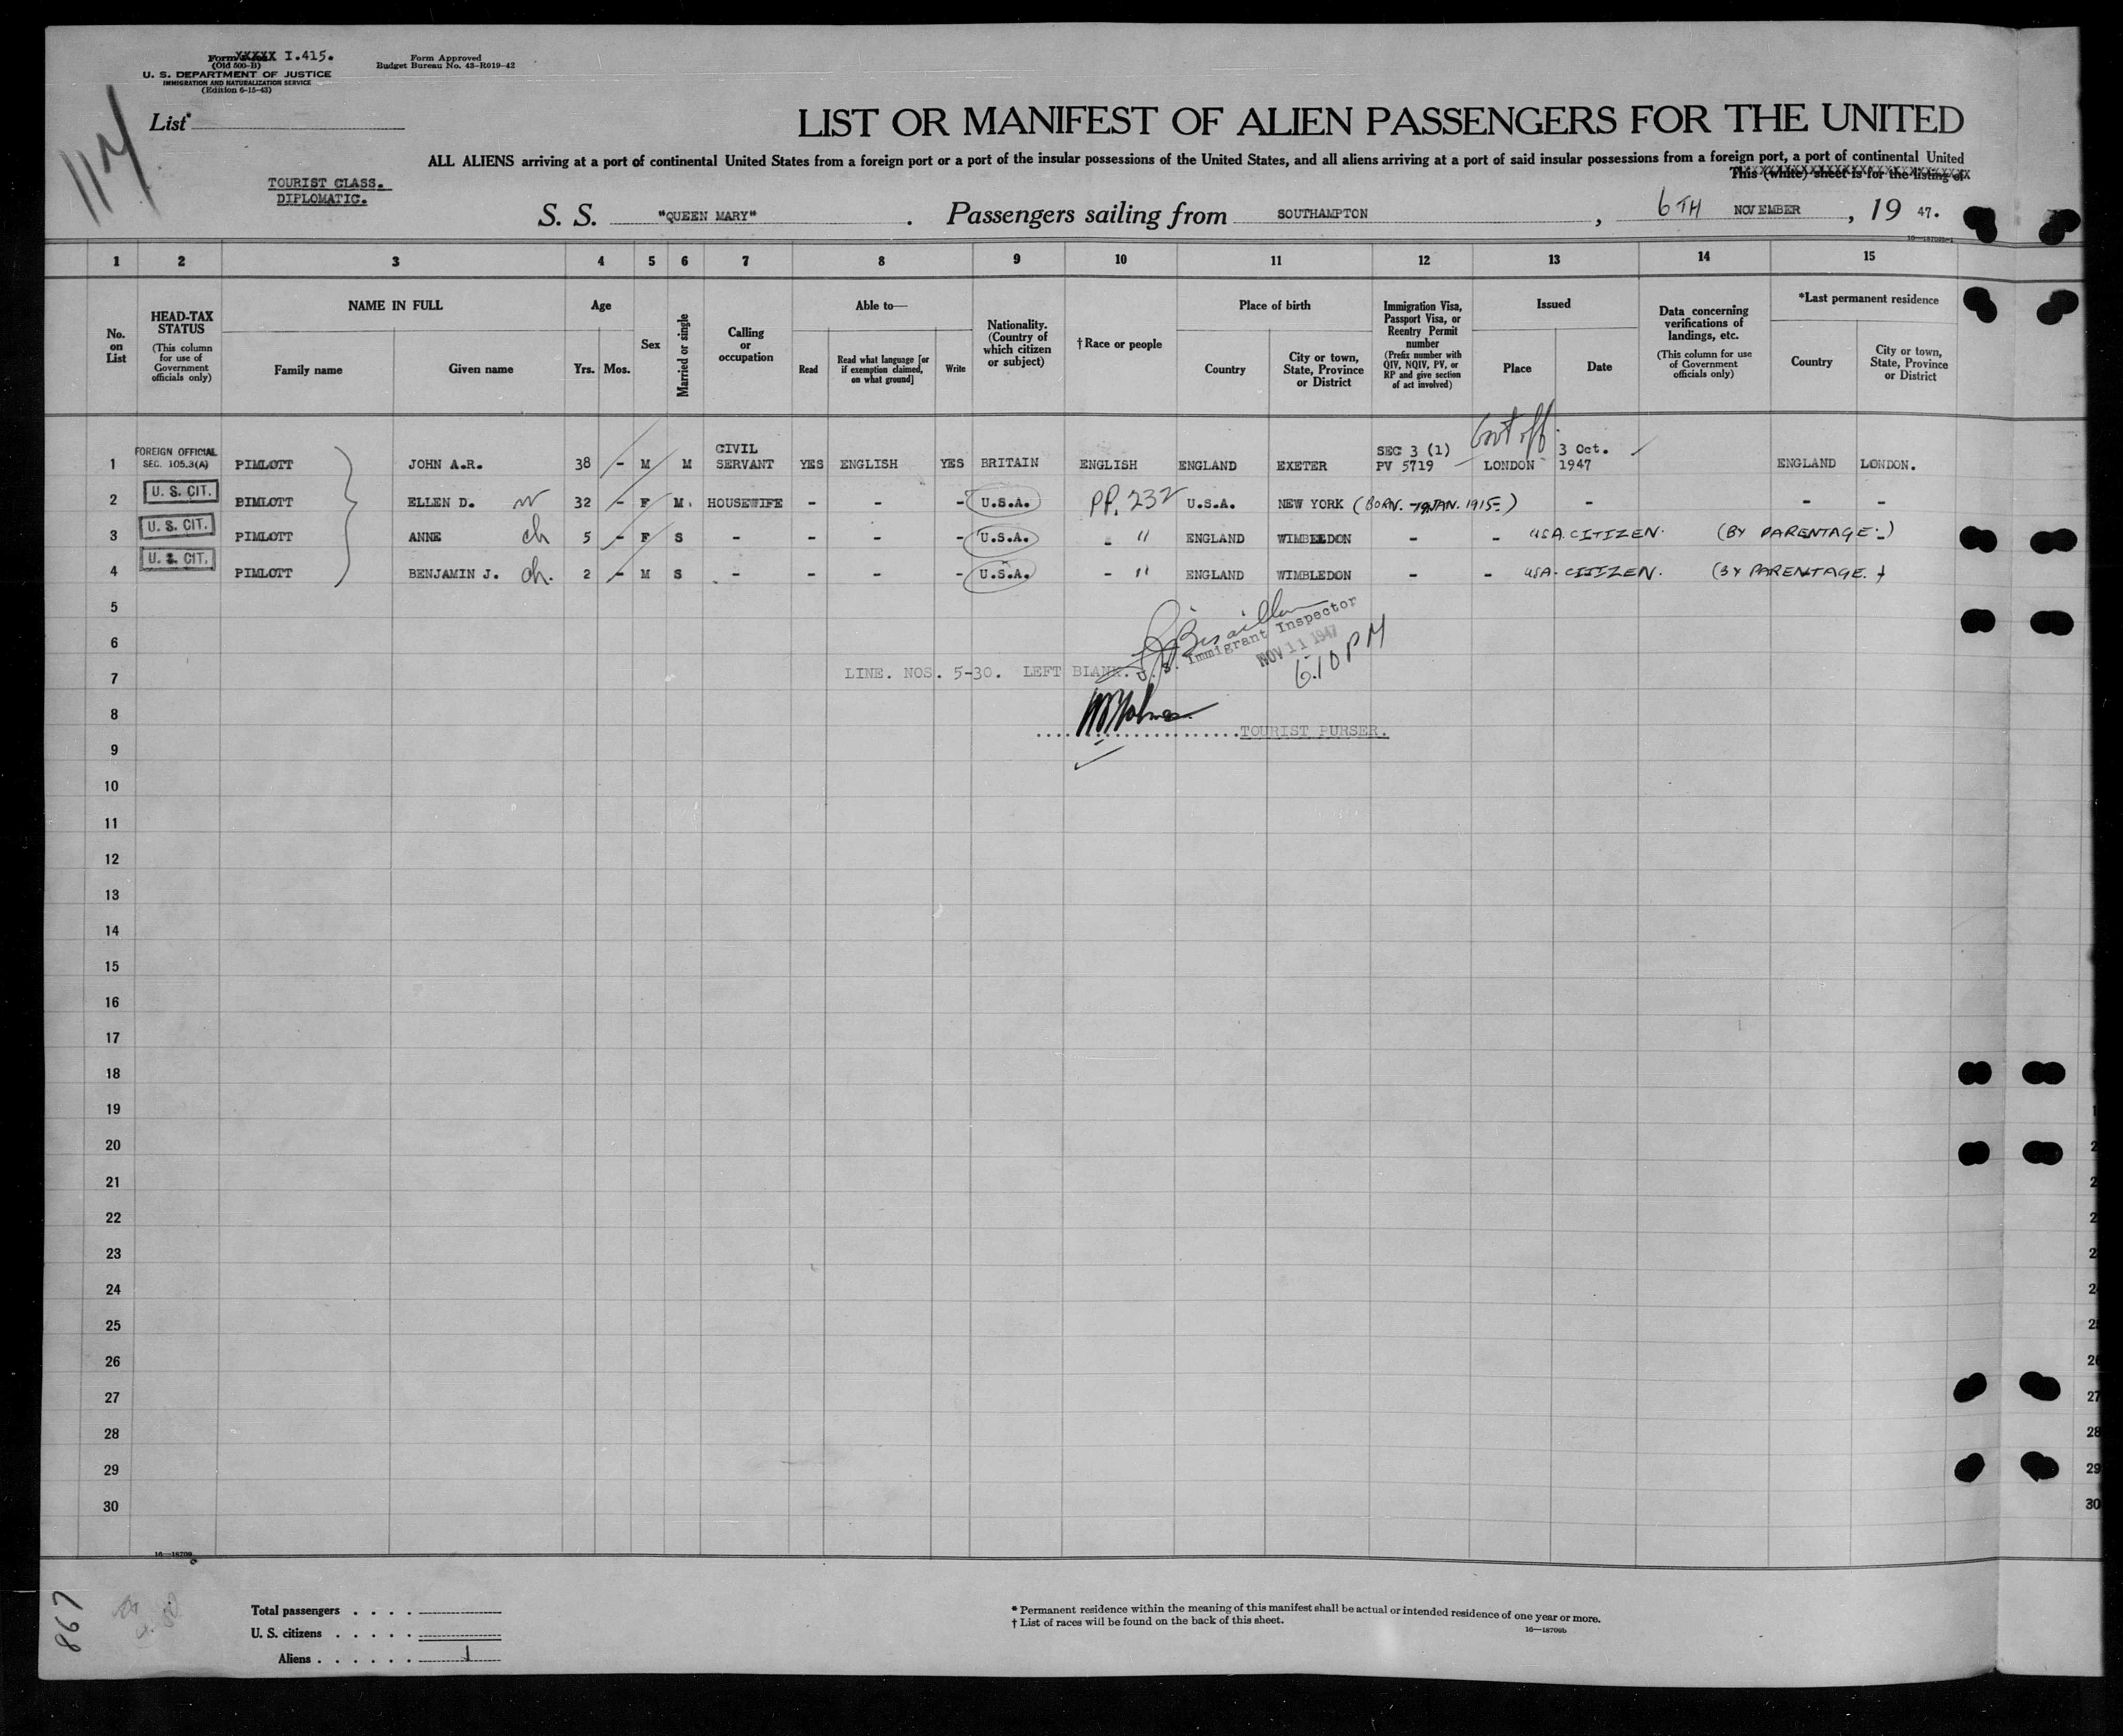 Form XXXXX I.415.
(Old 500-B)
U. S. DEPARTMENT OF JUSTICE
IMMIGRATION AND NATURALIZATION SERVICE
(Edition 6-15-43)
Form Approved
Budget Bureau No. 43-R019-42
117
List
LIST OR MANIFEST OF ALIEN PASSENGERS FOR THE UNITED
ALL ALIENS arriving at a port of continental United States from a foreign port or a port of the insular possessions of the United States, and all aliens arriving at a port of said insular possessions from a foreign port, a port of continental United
This (white) sheet is for the listing of
TOURIST CLASS.
DIPLOMATIC.
S. S. "QUEEN MARY". Passengers sailing from SOUTHAMPTON, 6TH NOVEMBER, 19 47.
1 2 3 4 5 6 7 8 9 10 11 12 13 14 15
No. on List
HEAD-TAX STATUS
(This column for use of Government officials only)
NAME IN FULL
Family name Given name
Age
Yrs. Mos.
Sex
Married or single
Calling or occupation
Able to—
Read
Read what language [or if exemption claimed, on what ground]
Write
Nationality. (Country of which citizen or subject)
†Race or people
Place of birth
Country
City or town, State, Province or District
Immigration Visa, Passport Visa, or Reentry Permit number
(Prefix number with QIV, NQIV, PV, or RP and give section of act involved)
Issued
Place Date
Data concerning verifications of landings, etc.
(This column for use of Government officials only)
*Last permanent residence
Country
City or town, State, Province or District
Govt off.
1 FOREIGN OFFICIAL SEC. 105.3(A) PIMLOTT JOHN A.R. 38 - M M CIVIL SERVANT YES ENGLISH YES BRITAIN ENGLISH ENGLAND EXETER SEC 3 (1) PV 5719 LONDON 3 Oct. 1947 ENGLAND LONDON.
2 U. S. CIT. BIMLOTT ELLEN D. w 32 - F M. HOUSEWIFE - - - U.S.A. PP. 232 U.S.A. NEW YORK (BORN. 19 JAN. 1915-) - - -
3 U. S. CIT. PIMLOTT ANNE ch 5 - F S - - - - U.S.A. - " ENGLAND WIMBLEDON - - USA. CITIZEN. (BY PARENTAGE-)
4 U. S. CIT. PIMLOTT BENJAMIN J. ch. 2 - M S - - - - U.S.A. - " ENGLAND WIMBLEDON - - USA. CITIZEN. (BY PARENTAGE.)
5
6
U. S. Immigrant Inspector
NOV 11 1947
6.10 PM
7 LINE. NOS. 5-30. LEFT BLANK.
8
TOURIST PURSER.
9
10
11
12
13
14
15
16
17
18
19
20
21
22
23
24
25
26
27
28
29
30
867
Total passengers
U. S. citizens
Aliens 1
* Permanent residence within the meaning of this manifest shall be actual or intended residence of one year or more.
† List of races will be found on the back of this sheet.
16—18706b